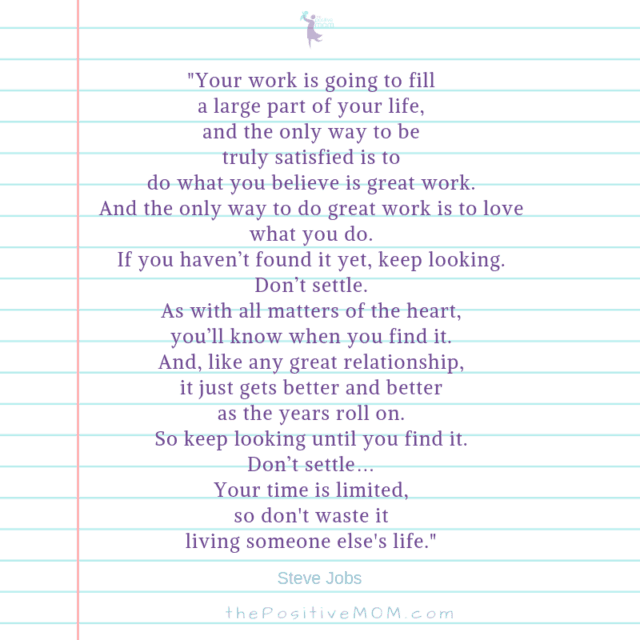 "Your work is going to fill
a large part of your life,
and the only way to be
truly satisfied is to
do what you believe is great work.
And the only way to do great work is to love
what you do.
If you haven’t found it yet, keep looking.
Don’t settle.
As with all matters of the heart,
you’ll know when you find it.
And, like any great relationship,
it just gets better and better
as the years roll on.
So keep looking until you find it.
Don’t settle…
Your time is limited,
so don't waste it
living someone else's life."
Steve Jobs
thePositiveMOM.com